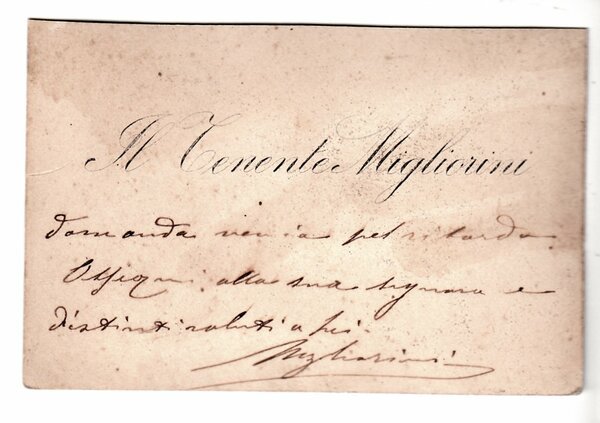 Il Tenente Migliorini
domanda venia pel ritardo.
Ossequi alla sua signora e
distinti saluti a Lei.
Migliorini